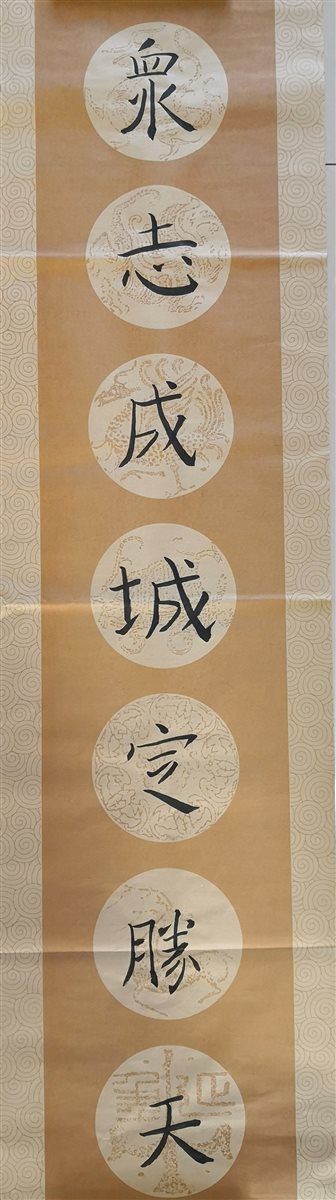 衆志成城定勝天